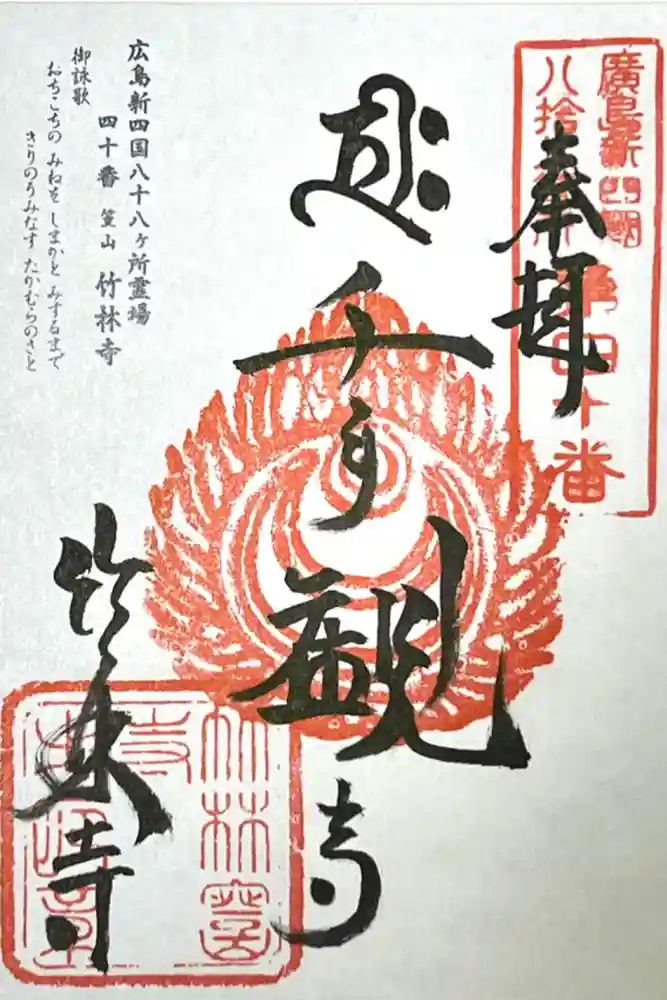 奉拝
廣島新四国
八拾八ヶ所
第四十番
千手観音
竹林寺
広島新四国八十八ヶ所霊場
四十番 篁山 竹林寺
御詠歌
おちこちの みねを しまかと みするまで
きりのうみなす たかむらのさと